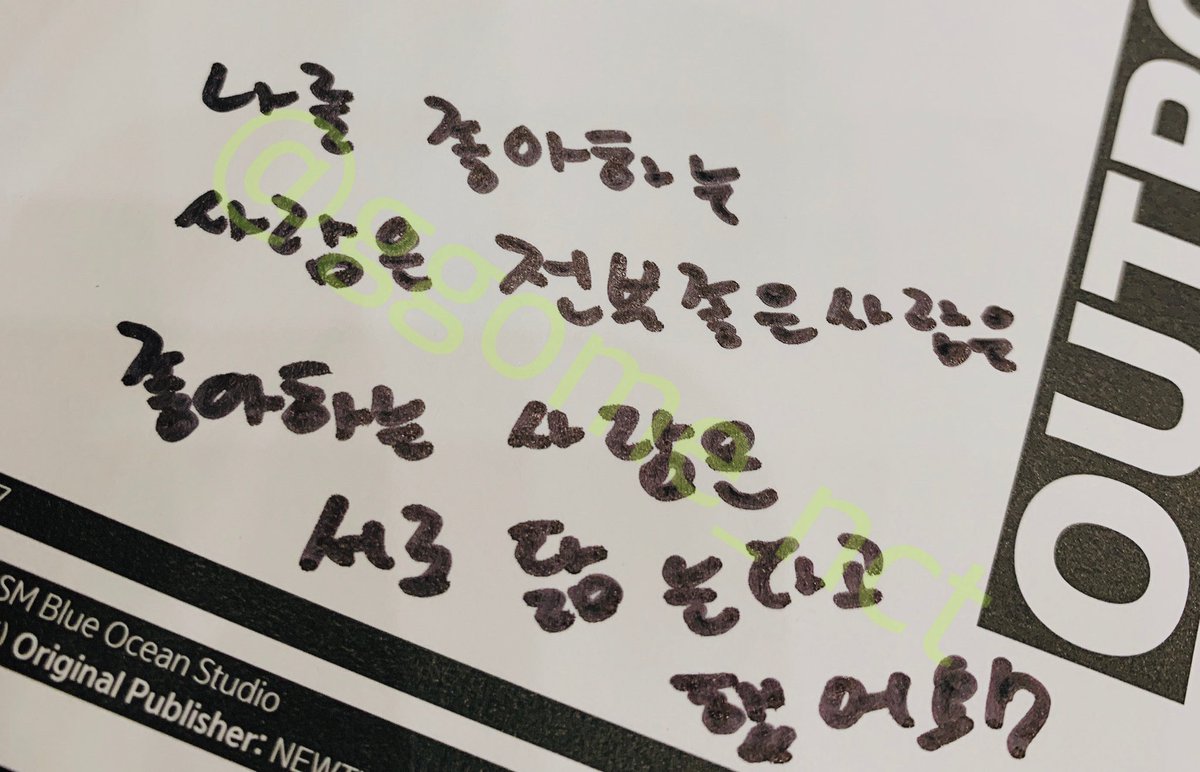 나를 좋아하는
사람은 전부 좋은사람은
좋아하는 사람은
서로 닮는다고
@ggoms_nct
SM Blue Ocean Studio
) Original Publisher: NEWT